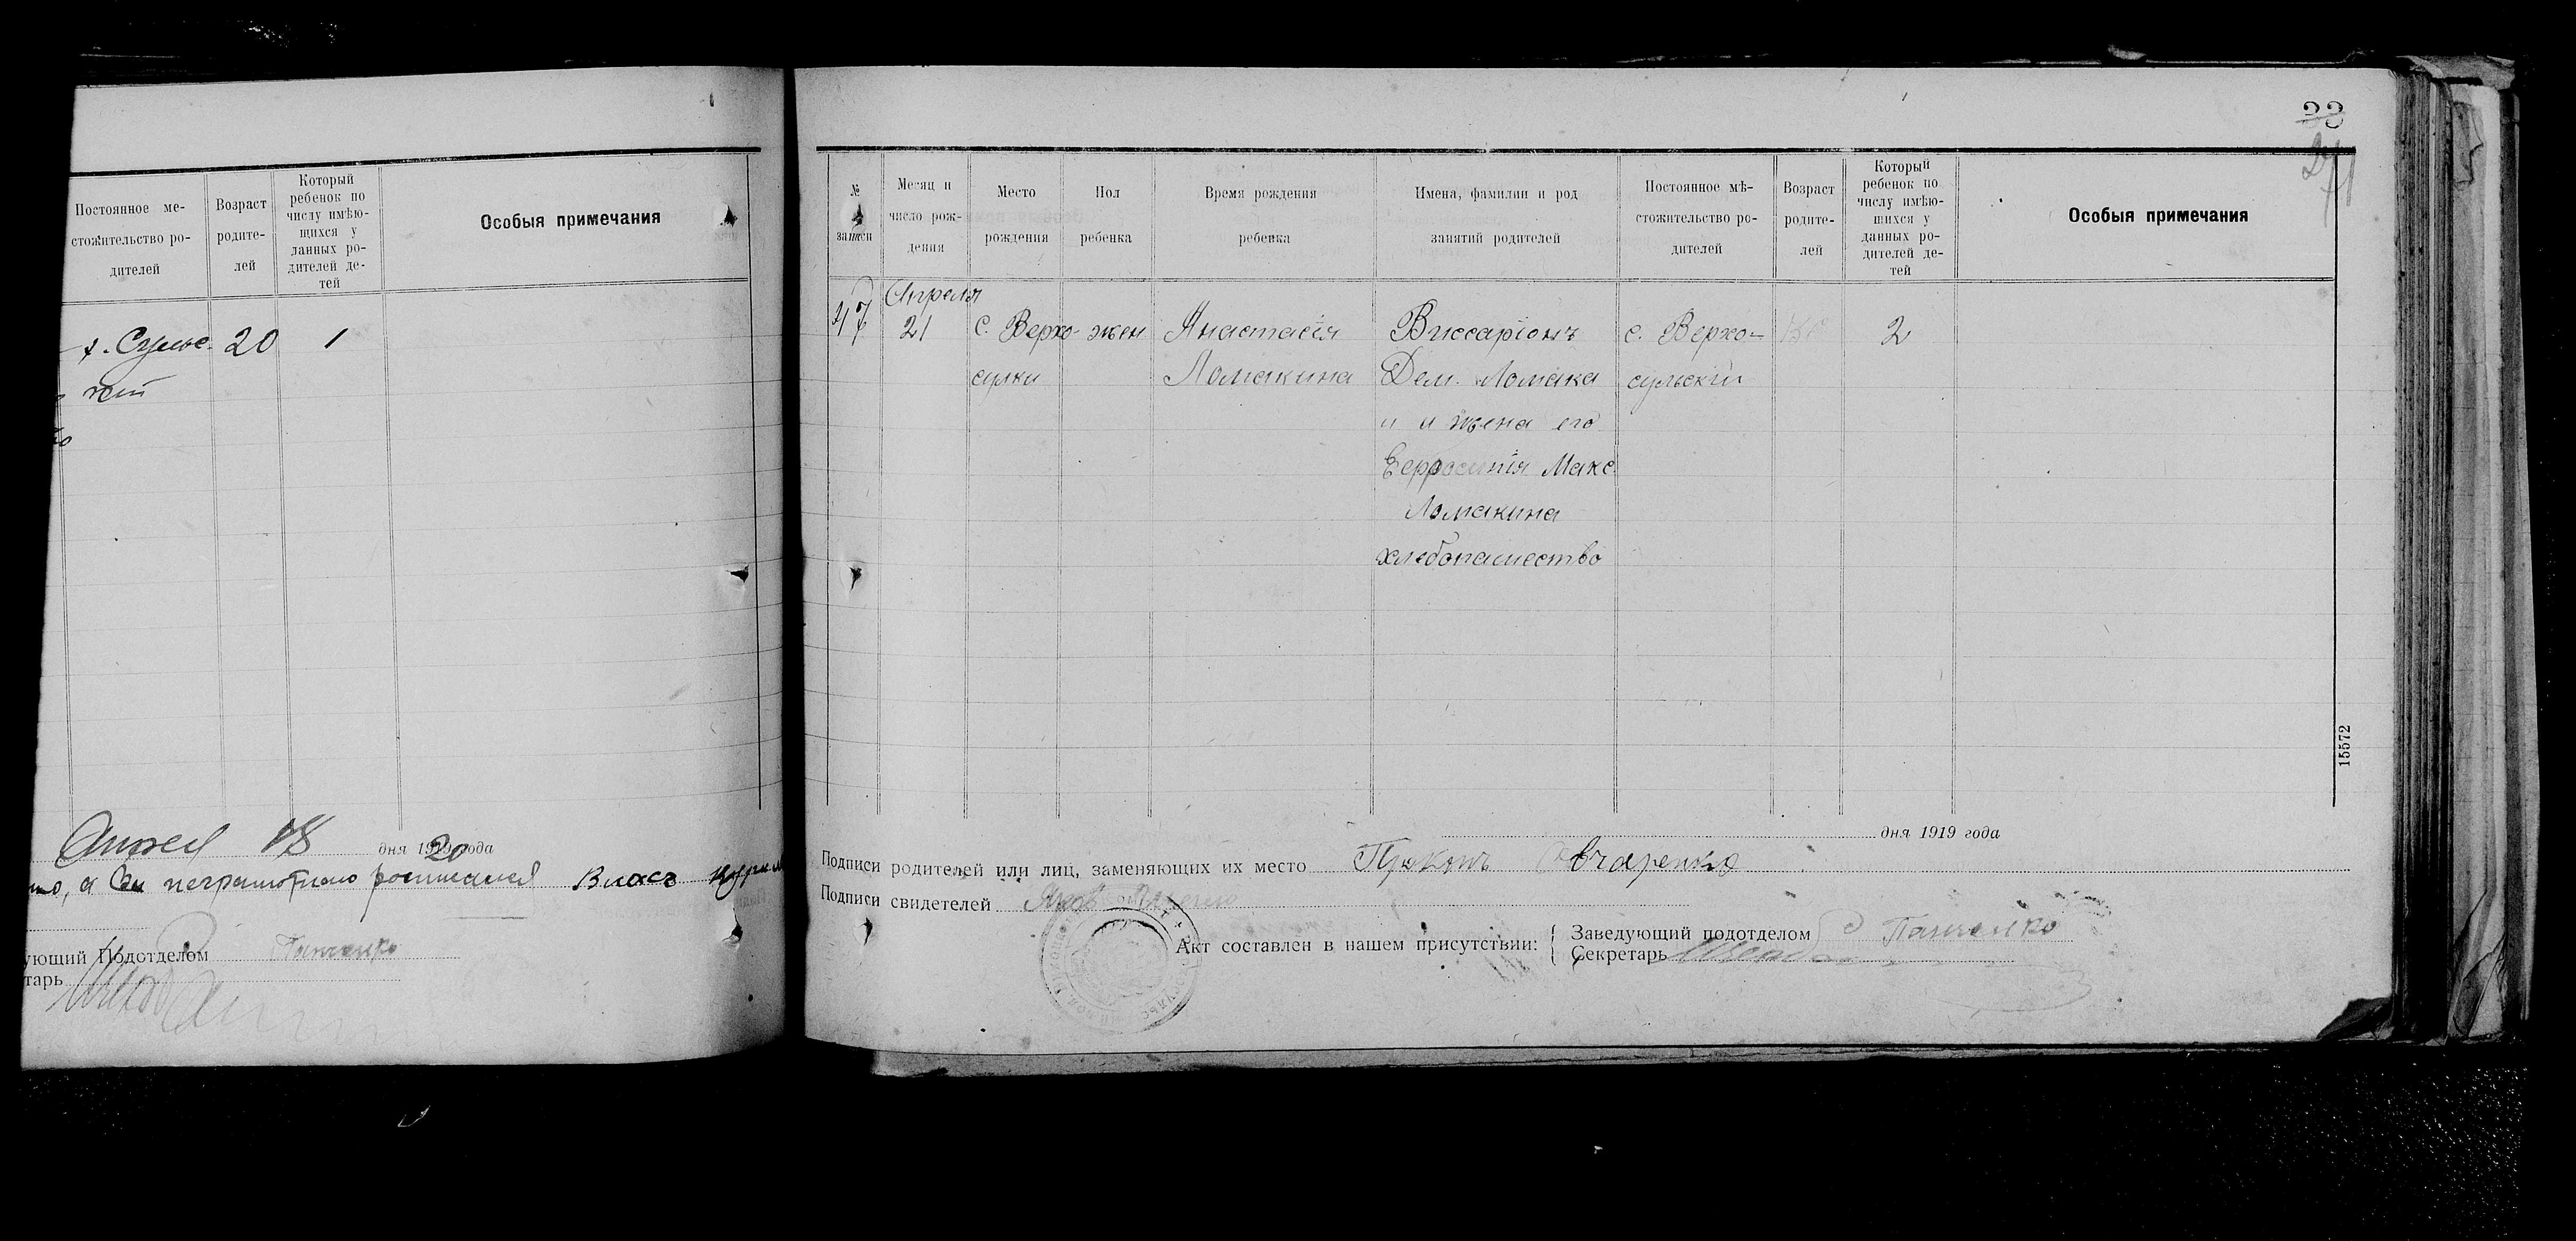 Постоянное ме-
стожительство ро-
дителей
Возраст
родите-
лей
Который
ребенок по
числу имѣю-
щихся у
данных ро-
дителей де-
тей
Особыя примечания
20
1
дня 1919 года
20
18
Власъ
ующий Подотделом
Панченко
тарь
23
№
записи
Месяц и
число рож-
дения
Место
рождения
Пол
ребенка
Время рождения
ребенка
Имена, фамилии и род
занятий родителей
Постоянное мѣ-
стожительство ро-
дителей
Возраст
родите-
лей
Который
ребенок по
числу имѣю-
шихся у
данных ро-
дителей де-
тей
Особыя примечания
47
Апреля
21
с. Верхо-
сулки
жен
Анастасія
Ломакина
Виссаріонъ
Дем. Ломака
и и жена его
Ефросинія Макс.
Ломакина
хлебопашество
с. Верхо-
сульскій
2
15572
дня 1919 года
Подписи родителей или лиц, заменяющих их место Овчаренко
Подписи свидетелей
Акт составлен в нашем присутствии:
Заведующий подотделом Панченко
Секретарь